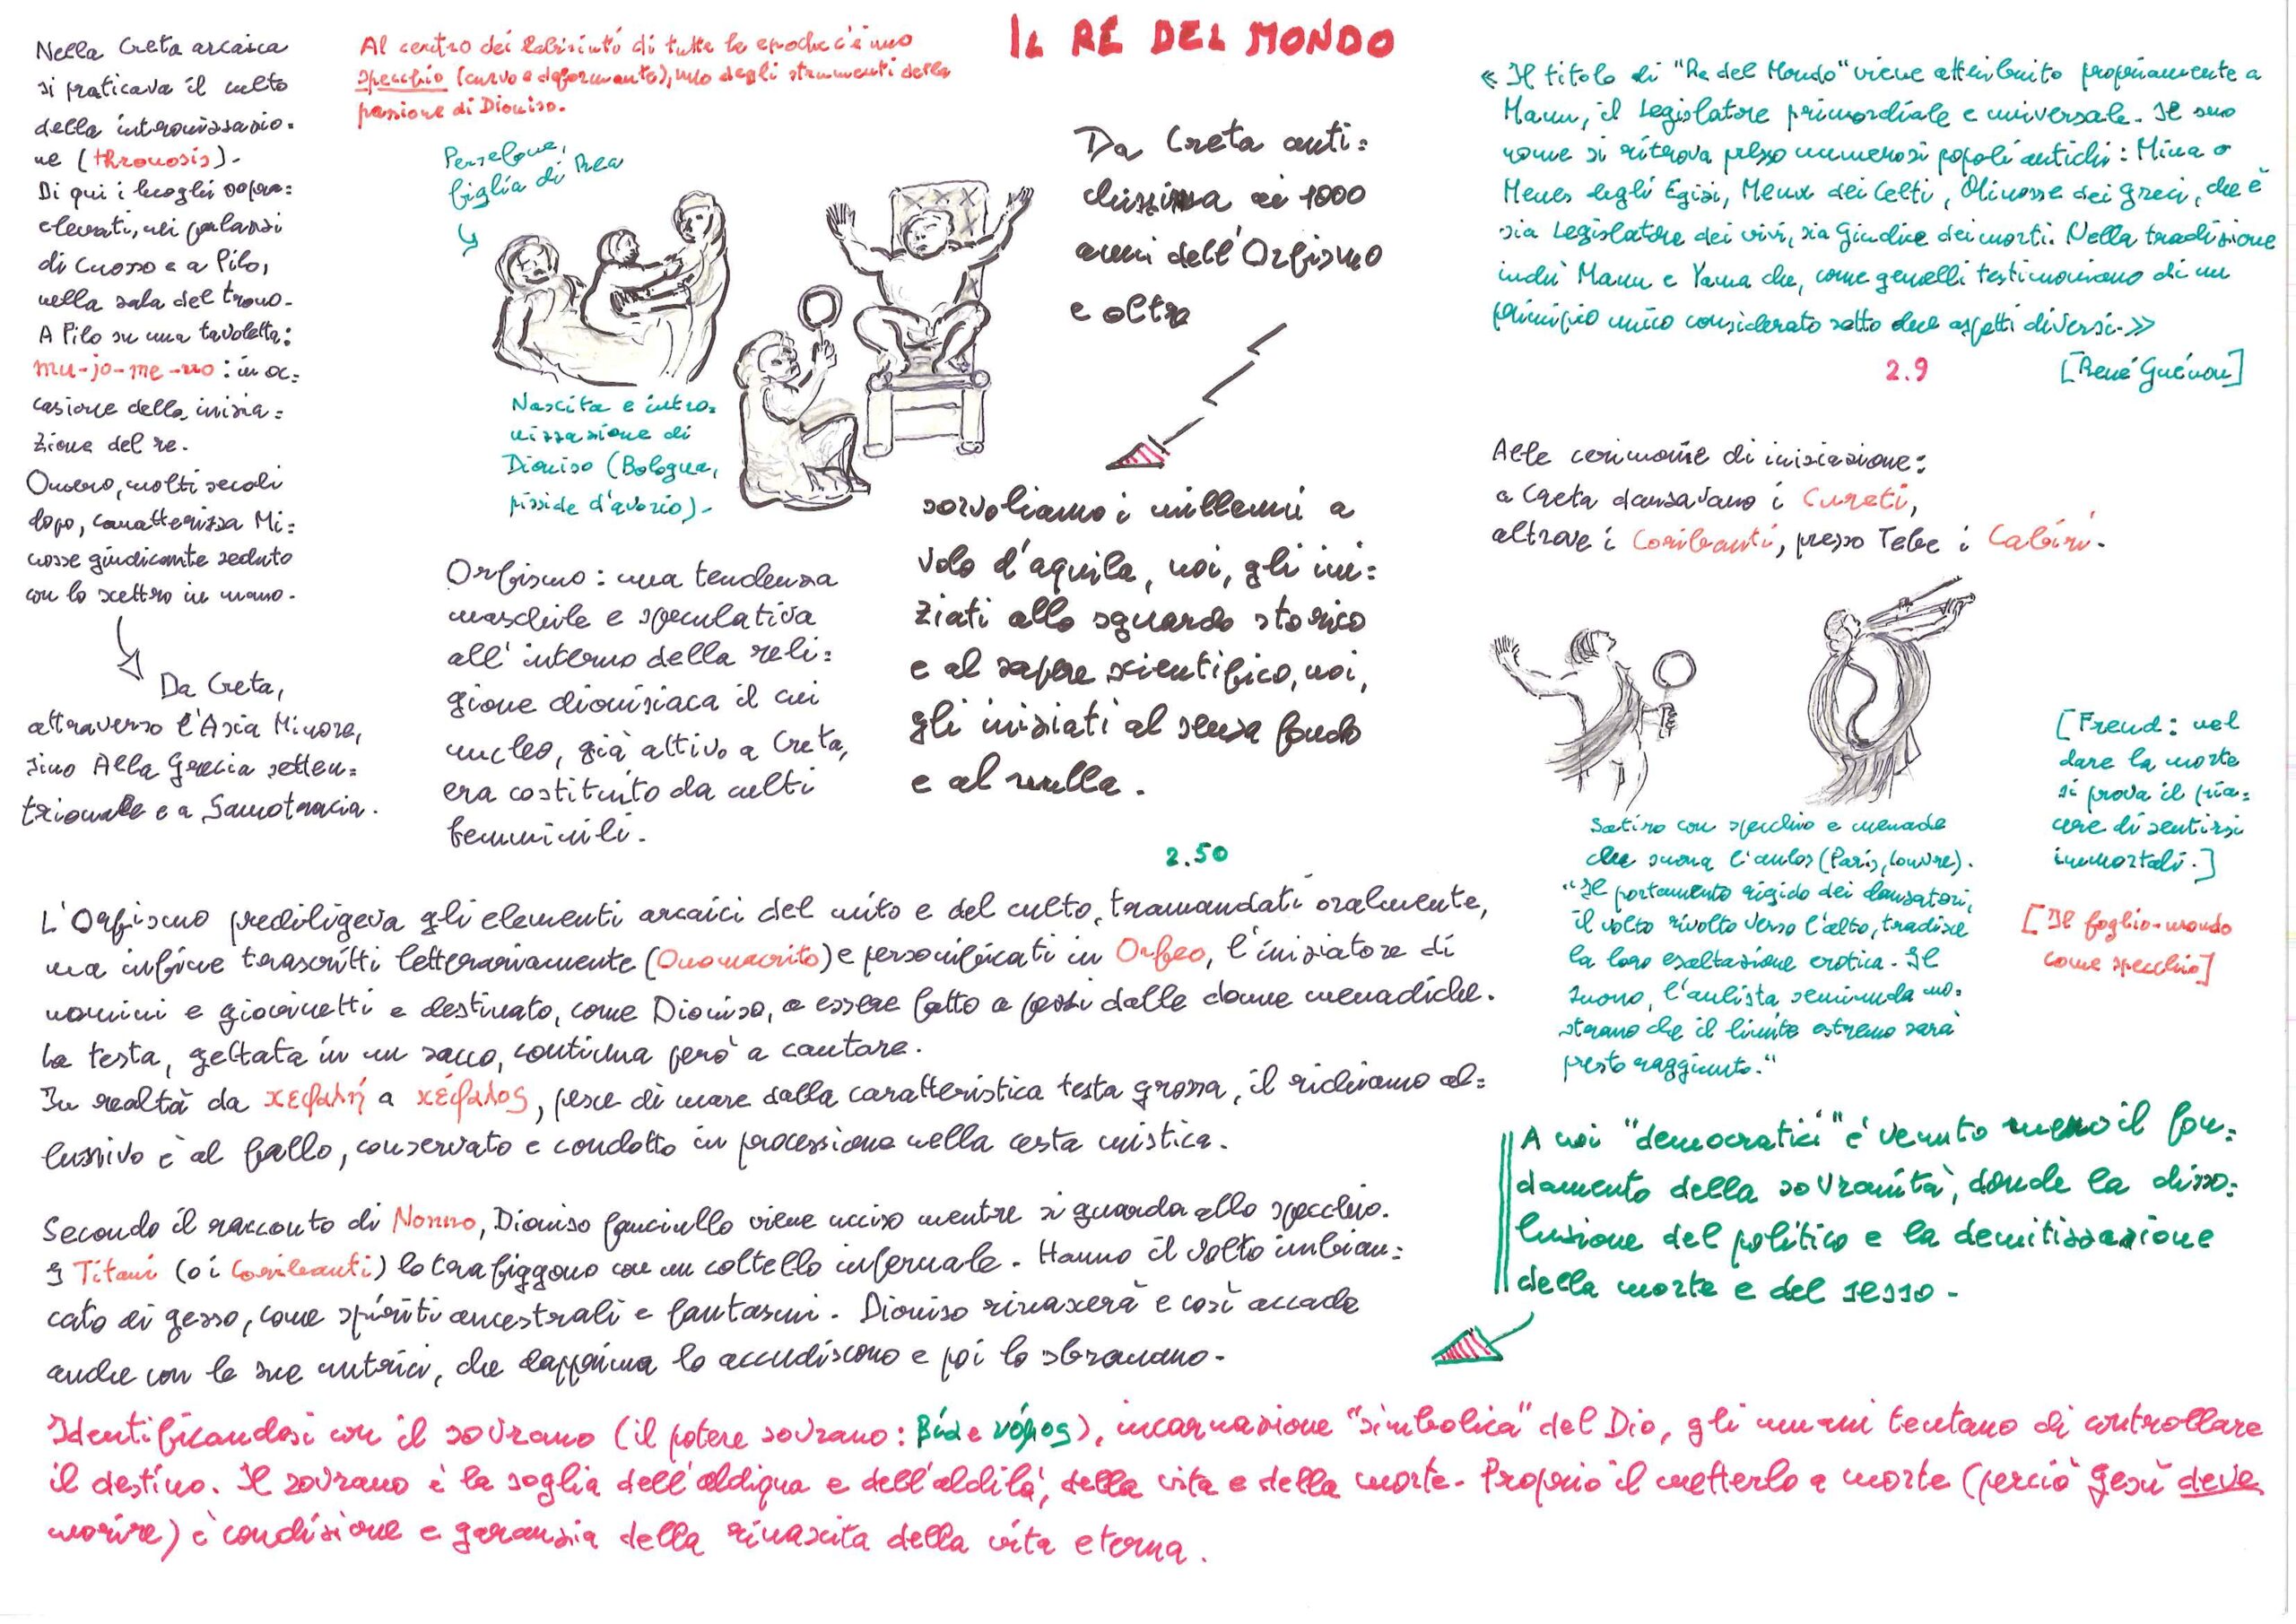 IL RE DEL MONDO
Nella Creta arcaica
si praticava il culto
della intronizzazio=
ne (thronosis).
Di qui i luoghi sopra=
elevati, nei palazzi
di Cnosso e a Pilo,
nella sala del trono.
A Pilo su una tavoletta:
mu-jo-me-no: in oc=
casione della inizia=
zione del re.
Omero, molti secoli
dopo, caratterizza Mi=
nosse giudicante seduto
con lo scettro in mano.
Da Creta,
attraverso l'Asia Minore,
sino Alla Grecia setten=
trionale e a Samotracia.
Al centro dei labirinti di tutte le epoche c'è uno
specchio (curvo e deformante), uno degli strumenti della
passione di Dioniso.
Persefone,
figlia di Rea
Nascita e intro=
nizzazione di
Dioniso (Bologna,
pisside d'avorio).
Da Creta anti=
chissima ai 1000
anni dell'Orfismo
e oltre
sorvoliamo i millenni a
volo d'aquila, noi, gli ini=
ziati allo sguardo storico
e al sapere scientifico, noi,
gli iniziati al senza fondo
e al nulla.
2.50
Orfismo: una tendenza
maschile e speculativa
all'interno della reli=
gione dionisiaca il cui
nucleo, già attivo a Creta,
era costituito da culti
femminili.
« Il titolo di "Re del Mondo" viene attribuito propriamente a
Manu, il Legislatore primordiale e universale. Il suo
nome si ritrova presso numerosi popoli antichi: Mina o
Menes degli Egizi, Menw dei Celti, Minosse dei Greci, che è
sia Legislatore dei vivi, sia Giudice dei morti. Nella tradizione
indù Manu e Yama che, come gemelli testimoniano di un
principio unico considerato sotto due aspetti diversi.»
2.9
[René Guénon]
Alle cerimonie di iniziazione:
a Creta danzavano i Cureti,
altrove i Coribanti, presso Tebe i Cabiri.
Satiro con specchio e menade
che suona l'aulos (Paris, Louvre).
"Il portamento rigido dei danzatori,
il volto rivolto verso l'alto, tradisce
la loro esaltazione erotica. Il
suono, l'aulista seminuda mo=
strano che il limite estremo sarà
presto raggiunto."
[Freud: nel
dare la morte
si prova il pia=
cere di sentirsi
immortali.]
[Il foglio-mondo
come specchio]
L'Orfismo prediligeva gli elementi arcaici del mito e del culto, tramandati oralmente,
ma infine trascritti letterariamente (Onomacrito) e personificati in Orfeo, l'iniziatore di
uomini e giovinetti e destinato, come Dioniso, a essere fatto a pezzi dalle donne menadiche.
La testa, gettata in un sacco, continua però a cantare.
In realtà da κεφαλή a κέφαλος, pesce di mare dalla caratteristica testa grossa, il richiamo al=
lusivo è al fallo, conservato e condotto in processione nella cesta mistica.
Secondo il racconto di Nonno, Dioniso fanciullo viene ucciso mentre si guarda allo specchio.
I Titani (o i Coribanti) lo trafiggono con un coltello infernale. Hanno il volto imbian=
cato di gesso, come spiriti ancestrali e fantasmi. Dioniso rinascerà e così accade
anche con le sue nutrici, che dapprima lo accudiscono e poi lo sbranano.
A noi "democratici" è venuto meno il fon=
damento della sovranità, donde la disso=
luzione del politico e la demitizzazione
della morte e del sesso.
Identificandosi con il sovrano (il potere sovrano: βία e νόμος), incarnazione "simbolica" del Dio, gli umani tentano di controllare
il destino. Il sovrano è la soglia dell'aldiqua e dell'aldilà, della vita e della morte. Proprio il metterlo a morte (perciò Gesù deve
morire) è condizione e garanzia della rinascita della vita eterna.